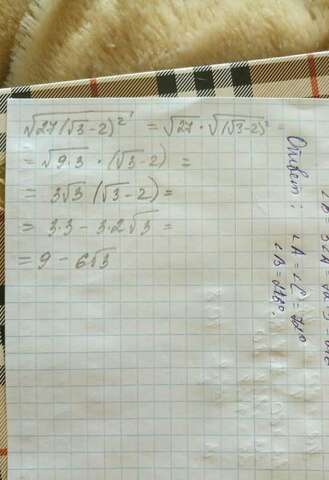 √27(√3-2)² = √27 · √(√3-2)² =
= √9·3 · (√3-2) =
= 3√3 (√3-2) =
= 3·3 - 3·2√3 =
= 9 - 6√3
Ответ:
∠A = ∠C =
∠B =